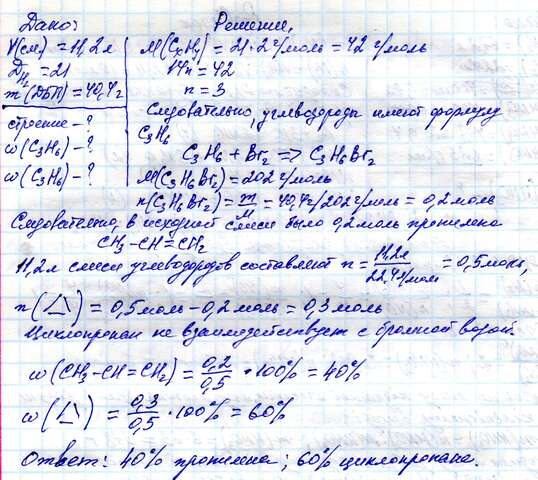 Дано:
V(см) = 11,2л
D_H₂ = 21
m(ДБП) = 40,4г
строение - ?
ω(C₃H₆) - ?
ω(C₃H₆) - ?
Решение,
M(CₓHᵧ) = 21·2г/моль = 42 г/моль
14n = 42
n = 3
Следовательно, углеводороды имеют формулу
C₃H₆
C₃H₆ + Br₂ => C₃H₆Br₂
M(C₃H₆Br₂) = 202 г/моль
n(C₃H₆Br₂) = m/M = 40,4г/202 г/моль = 0,2 моль
Следовательно, в исходной смеси было 0,2 моль пропилена
CH₃-CH=CH₂
11,2л смеси углеводородов составляет n = 11,2л/22,4л/моль = 0,5моль,
n(△) = 0,5моль - 0,2 моль = 0,3 моль
Циклопропан не взаимодействует с бромной водой.
ω(CH₃-CH=CH₂) = 0,2/0,5 · 100% = 40%
ω(△) = 0,3/0,5 · 100% = 60%
Ответ: 40% пропилена; 60% циклопропана.